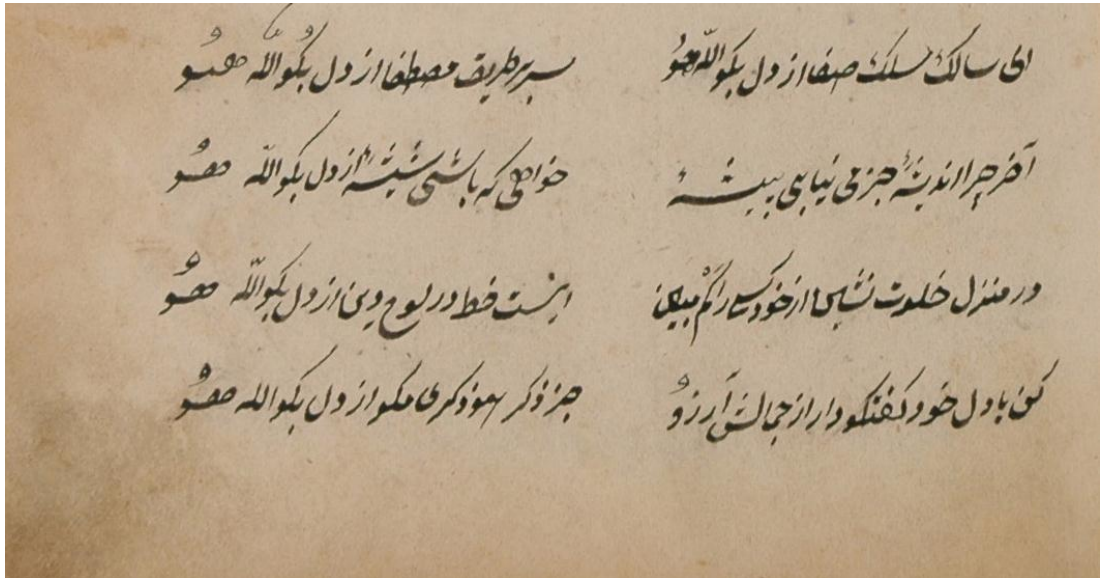 ای سالک مسلک صفا از دل بکو الله هو سر بر طریق مصطفا از دل بکو الله هو
آخر چرا اندیشهٔ جز می نیابی پیشهٔ خواهی که باشی شیشهٔ از دل بکو الله هو
در منزل خلوت نشین از خود کسی را کم مبین اینست خط در لوح دین از دل بکو الله هو
کن با دل خود کفتکو دار از جمالش آرزو جز ذکر هو ذکری مکو از دل بکو الله هو